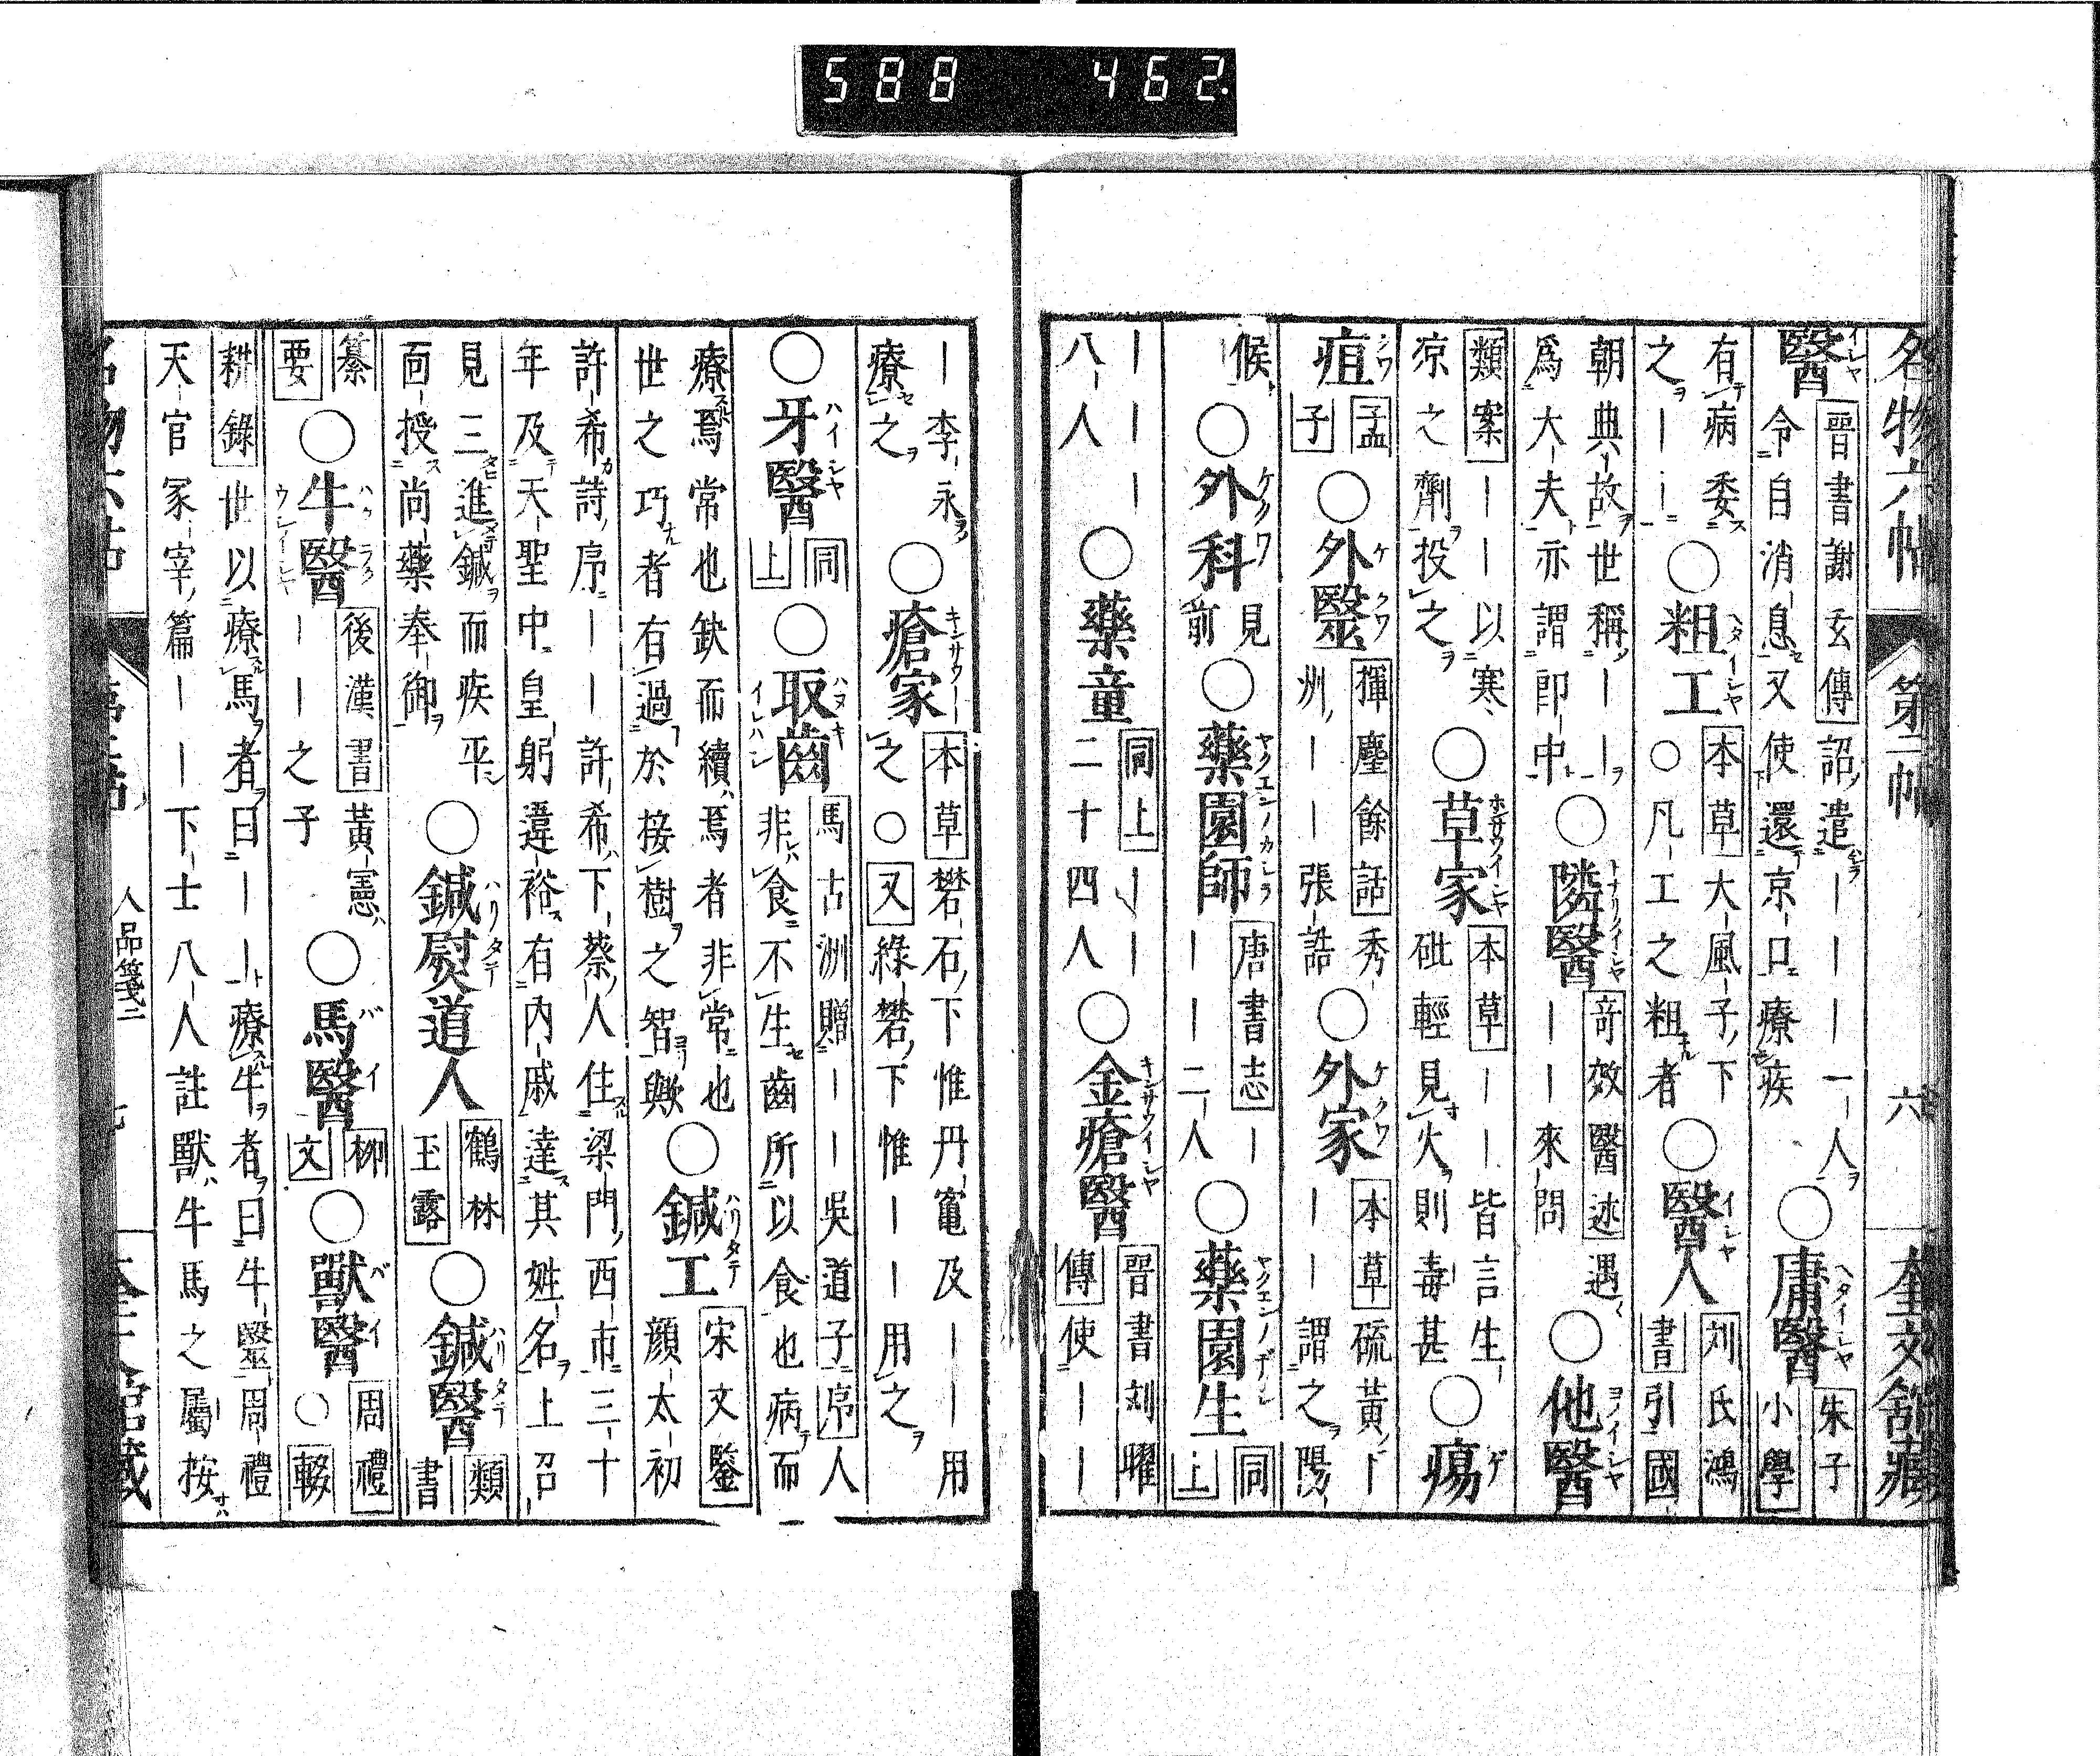 588 462
名物六帖 第二帖 六 奎文舘藏
醫 晉書謝玄傳 詔遣ーーー一人 令自消息又使還京口療疾 ○庸醫 朱子小學
有病委之ーー ○粗工 本草 大風子下 ○凡工之粗者 ○醫人 刘氏鴻書 引國
朝典故世稱ーー 爲大夫亦謂郎中 ○隣醫 奇效醫述 遇ーー來問 ○他醫
類案 ーーー以寒凉之劑投之 ○草家 本草 ーー皆言生砒輕見火則毒甚 ○瘍
疽 孟子 ○外醫 揮麈餘話 秀洲ーー張誥 ○外家 本草 硫黃ーーー謂之陽
候 ○外科 見前 ○藥園師 唐書志 ーーー二人 ○藥園生 同上
ーーー八人 ○藥童 同上 ーー二十四人 ○金瘡醫 晉書刘曜傳 使ーー
ー李永療之 ○瘡家 本草 礬石下惟丹竃及ーー用之 ○又 綠礬下惟ーー用之
○牙醫 同上 ○取齒 馬古洲贈ーー吳道子序 人非食不生齒所以食也病而
療焉常也缺而續焉者非常也 世之巧者有過於接樹之智歟 ○鍼工 宋文鑒 顔太初
許希詩序ーー許希下蔡人住梁門西市三十年及天聖中皇躬違裕有內戚達其姓名上召
見三進鍼而疾平 面授尚藥奉御 ○鍼熨道人 鶴林玉露 ○鍼醫 類書
纂要 ○牛醫 後漢書 黃憲ーー之子 ○馬醫 柳文 ○獸醫 周禮 ○輟
耕錄 世以療馬者曰ーー療牛者曰牛醫周禮
天官冢宰篇ーー下士八人註獸牛馬之屬按
人品箋二